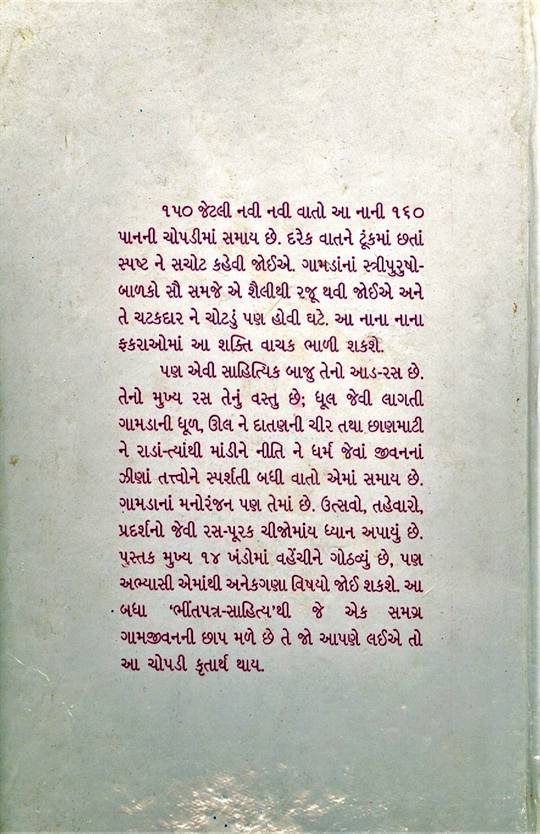 ૧૫૦ જેટલી નવી નવી વાતો આ નાની ૧૬૦
પાનની ચોપડીમાં સમાય છે. દરેક વાતને ટૂંકમાં છતાં
સ્પષ્ટ ને સચોટ કહેવી જોઈએ. ગામડાંનાં સ્ત્રીપુરુષો-
બાળકો સૌ સમજે એ શૈલીથી રજૂ થવી જોઈએ અને
તે ચટકદાર ને ચોટડું પણ હોવી ઘટે. આ નાના નાના
ફકરાઓમાં આ શક્તિ વાચક ભાળી શકશે.
પણ એવી સાહિત્યિક બાજુ તેનો આડ-રસ છે.
તેનો મુખ્ય રસ તેનું વસ્તુ છે; ધૂલ જેવી લાગતી
ગામડાની ધૂળ, ઊલ ને દાતણની ચીર તથા છાણમાટી
ને રાડાં-ત્યાંથી માંડીને નીતિ ને ધર્મ જેવાં જીવનનાં
ઝીણાં તત્ત્વોને સ્પર્શતી બધી વાતો એમાં સમાય છે.
ગામડાનાં મનોરંજન પણ તેમાં છે. ઉત્સવો, તહેવારો,
પ્રદર્શનો જેવી રસ-પૂરક ચીજોમાંય ધ્યાન અપાયું છે.
પુસ્તક મુખ્ય ૧૪ ખંડોમાં વહેંચીને ગોઠવ્યું છે, પણ
અભ્યાસી એમાંથી અનેકગણા વિષયો જોઈ શકશે. આ
બધા ‘ભીંતપત્ર-સાહિત્ય’થી જે એક સમગ્ર
ગામજીવનની છાપ મળે છે તે જો આપણે લઈએ તો
આ ચોપડી કૃતાર્થ થાય.